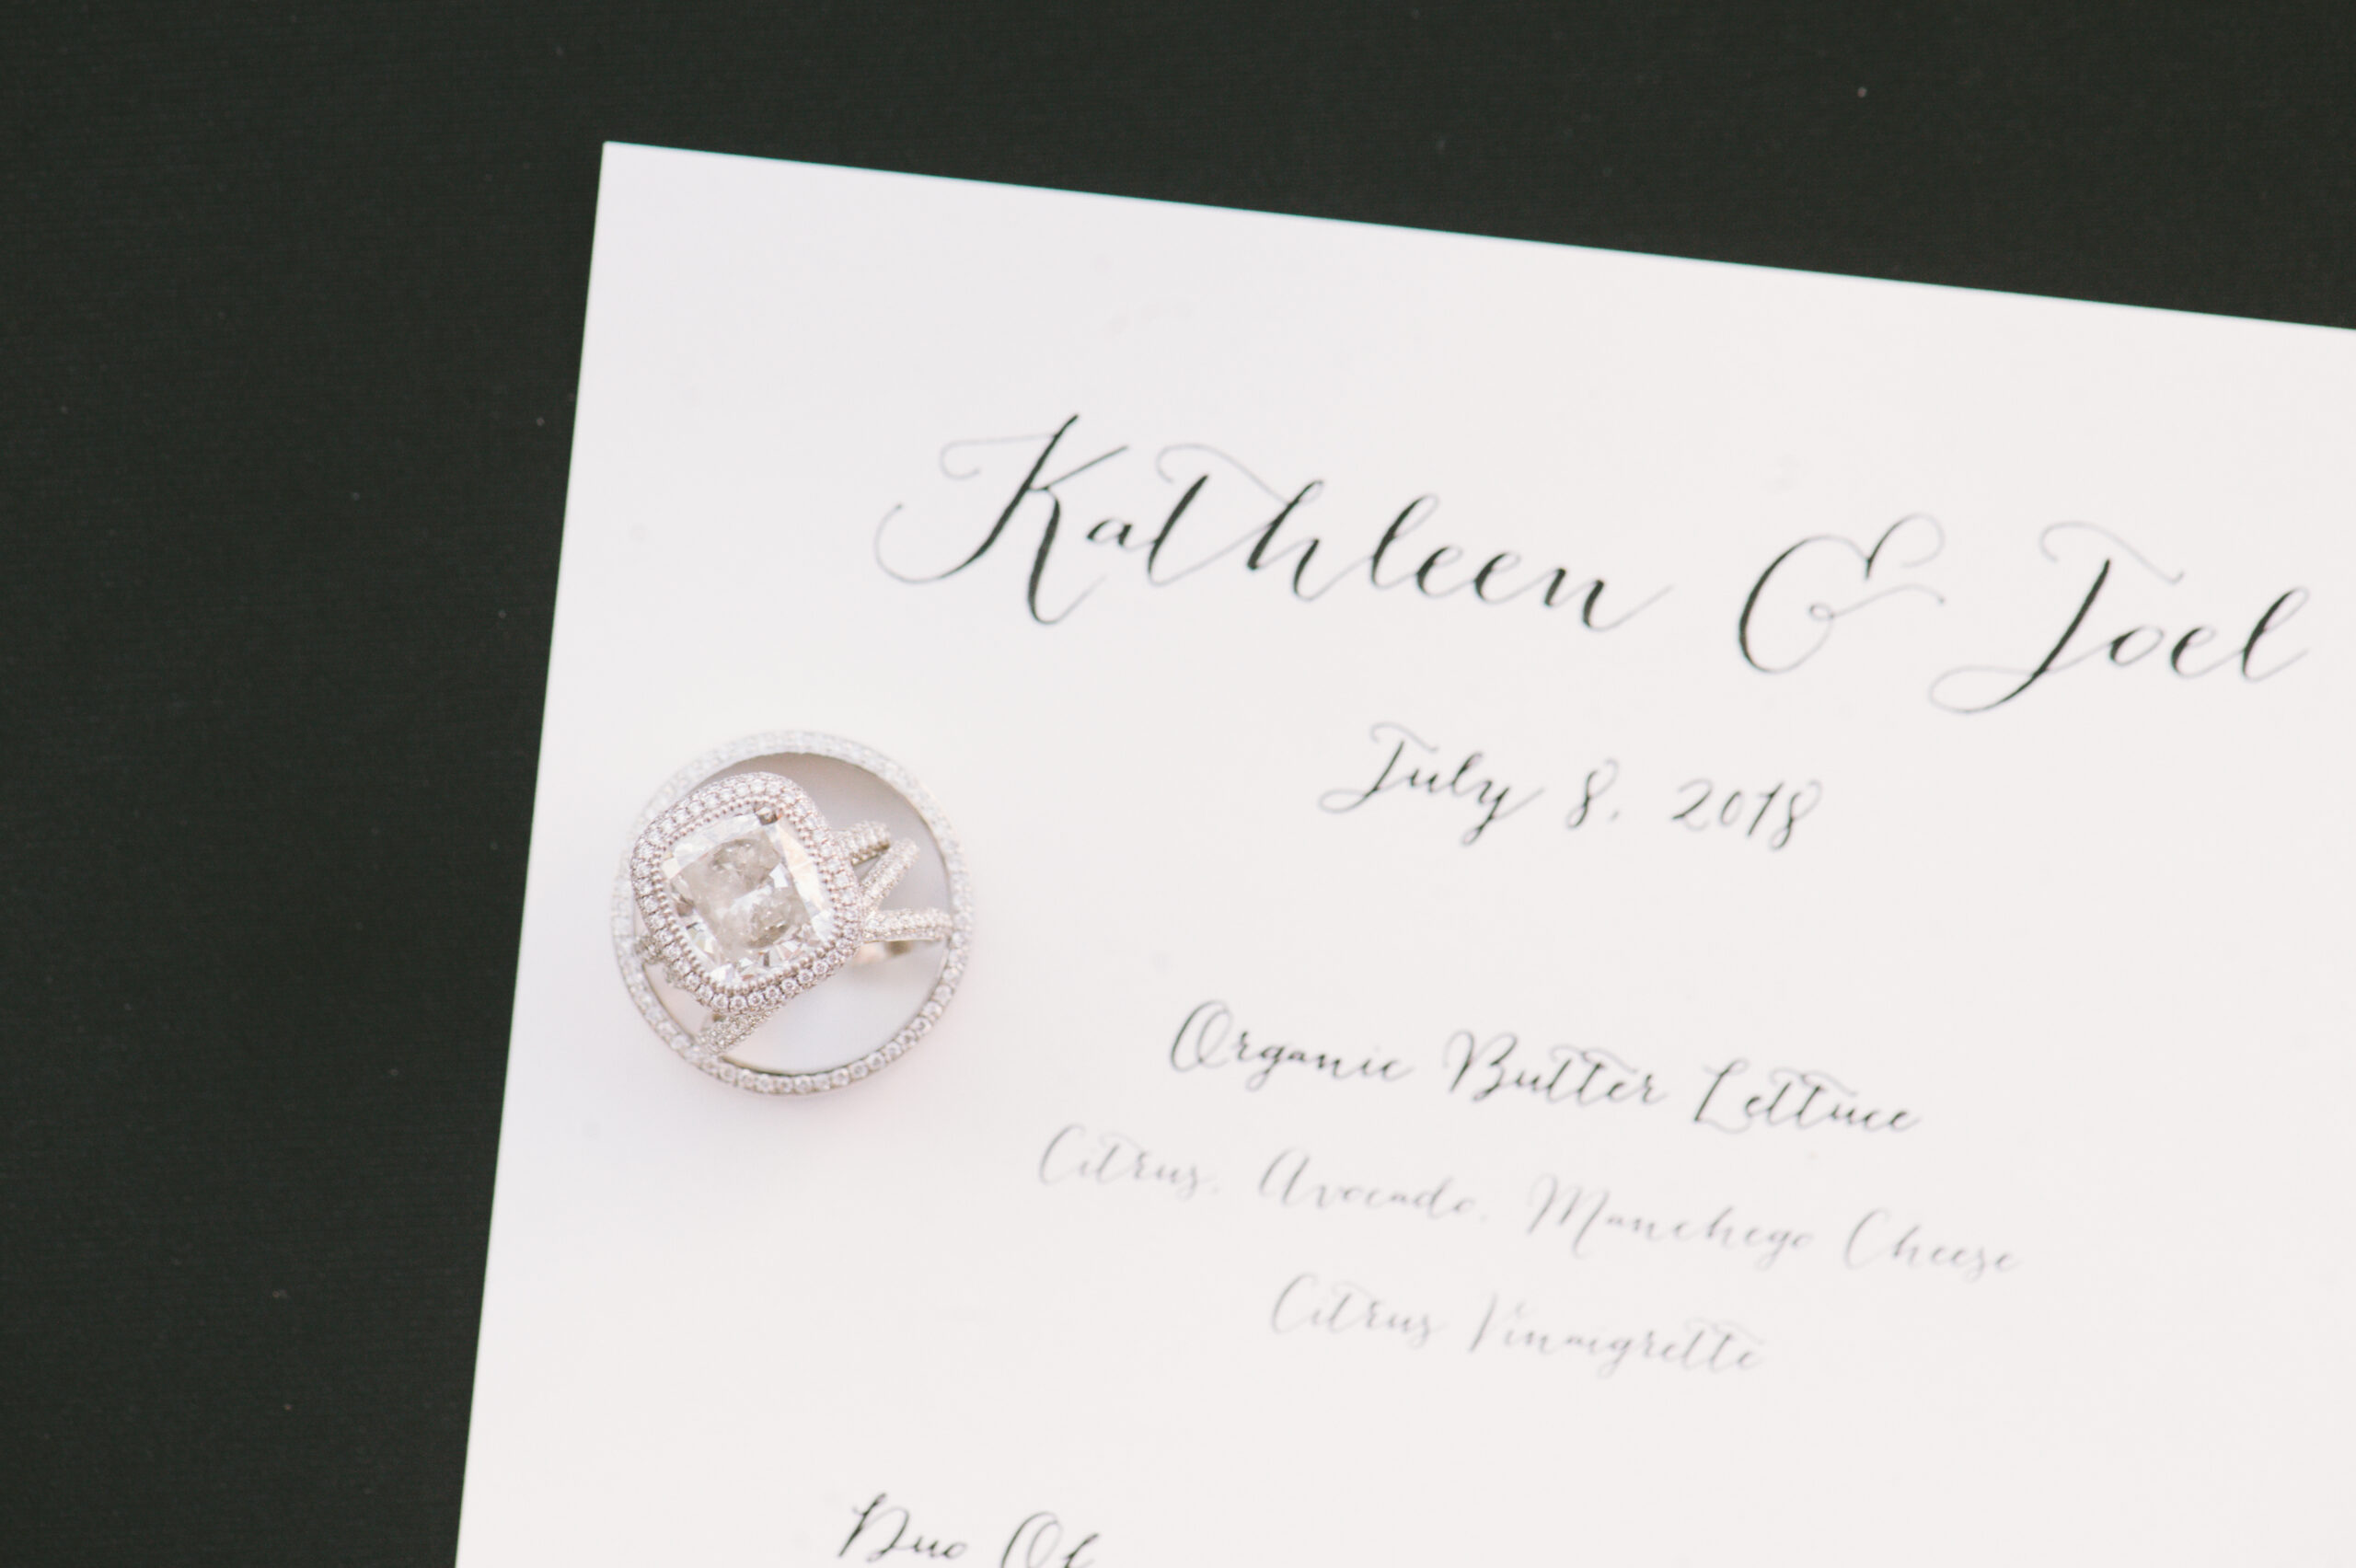 Kathleen & Joel
July 8, 2018
Organic Butter Lettuce
Citrus, Avocado, Manchego Cheese
Citrus Vinaigrette
Duo Of